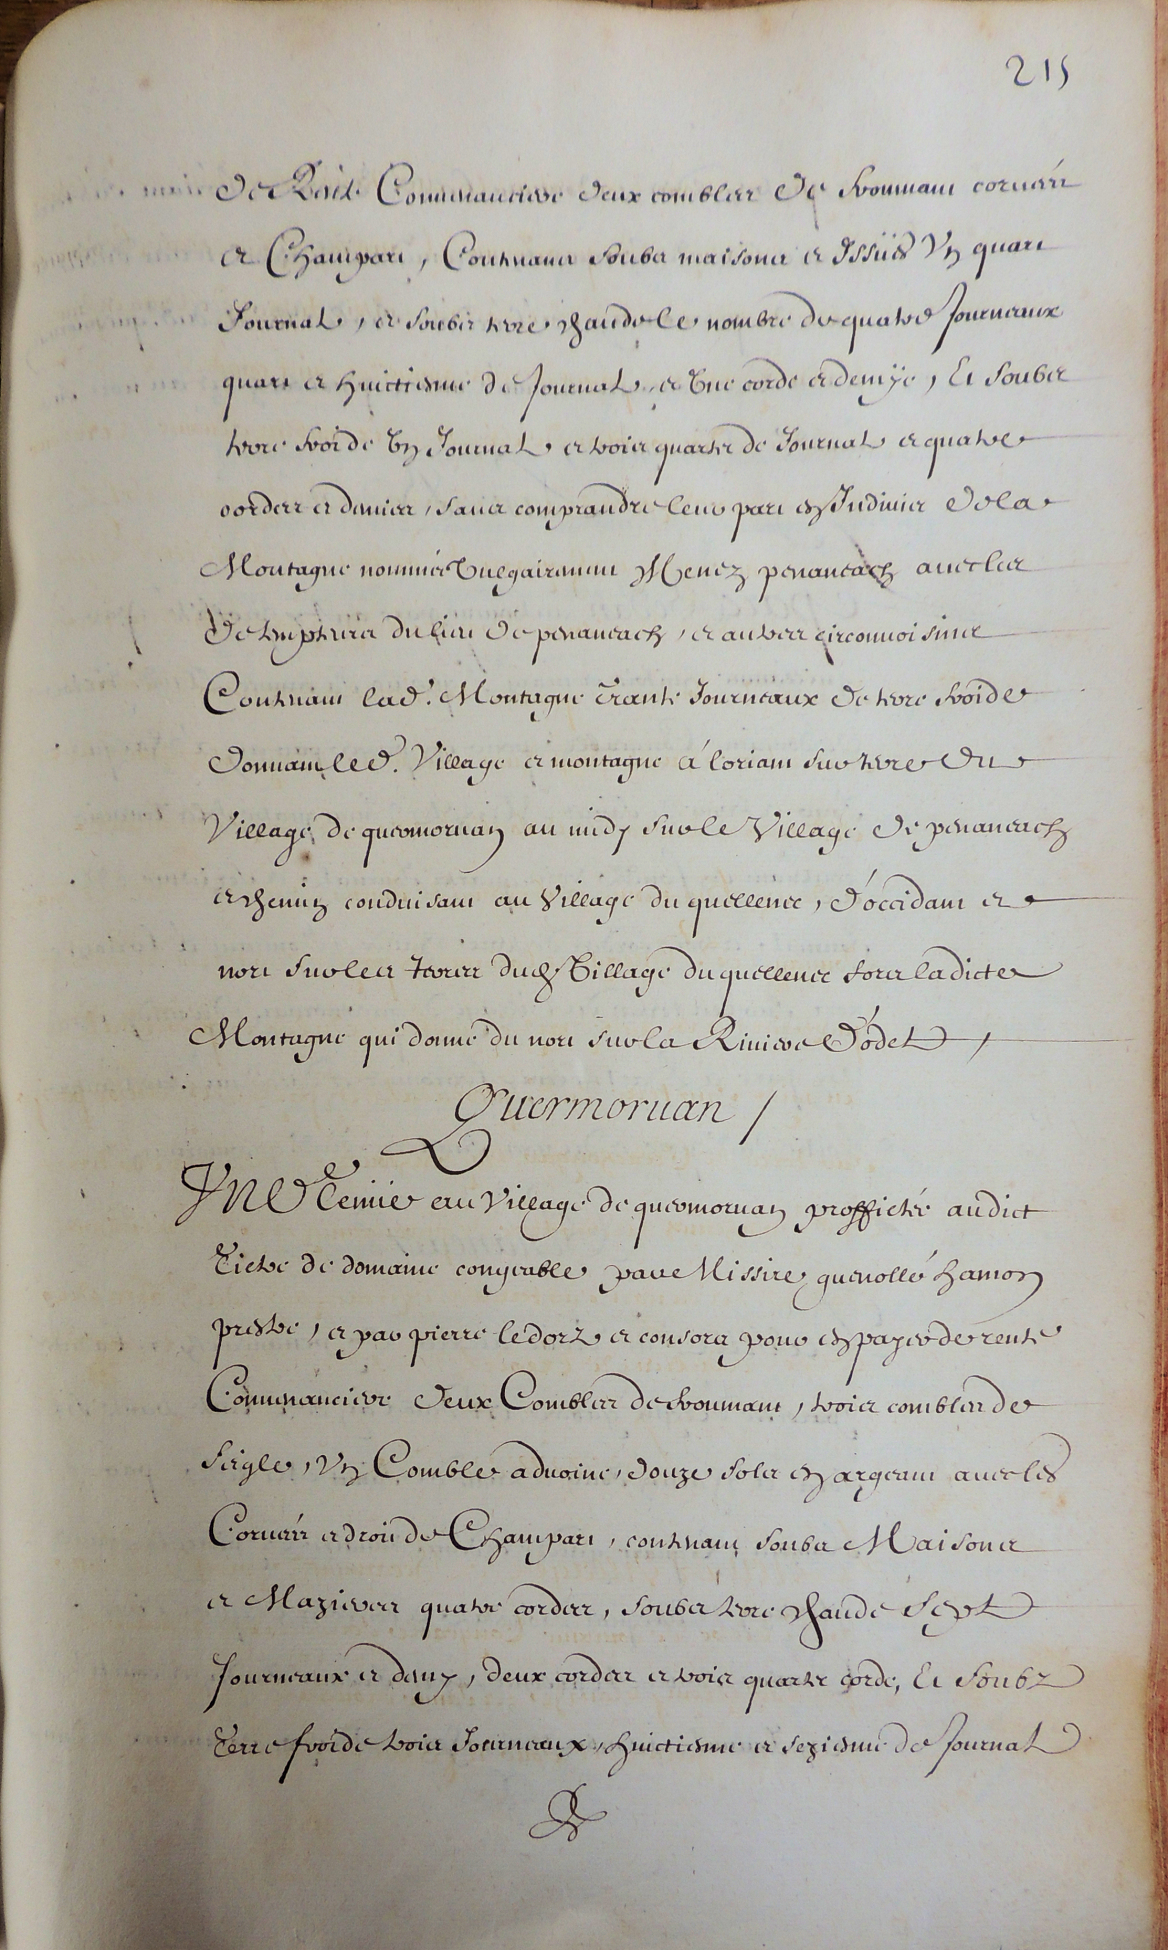 215
de Rente Commanciere deux combles de froumant corvées
et Champart, Contenant soubz maisons et Issües Un quart
Journal, et soubz terre chaude le nombre de quatre Journeaux
quart et huictiesme de Journal, et Une corde et demÿe, Et soubz
terre froide Un Journal et trois quartz de Journal et quatre
cordes et demies, sans comprandre leur part en Indivis de la
Montagne nommée Vulgairement Menez penaneach avec les
detempteurs du lieu de penaneach, et autres circonvoisins
Contenant lad. Montagne Trante Journeaux de terre froide
donnant led. Village et montagne á l'oriant sur terre du
Village de quermorvan au midy sur le Village de penaneach
et chemin conduisant au Village du quellenec, d'occidant et
nort sur les terres dud. Village du quellenec fors ladicte
Montagne qui donne du nort sur la Riviere d'odet,
Quermorvan /
Une Tenüe au Village de quermorvan proffictée audict
Tictre de domaine congeable par Missire guenollé hamon
prestre, et par pierre le dorz et consors pour en payer de rente
Commanciere deux Combles de froumant, trois combles de
seigle, Un Comble advoine, douze solz en argeant avec les
Corvées et droit de Champart, contenant soubz Maisons
et Mazieres quatre cordes, soubz terre chaude sept
Journeaux et demy, deux cordes et trois quartz corde, Et soubz
Terre froide trois Journeaux, huictiesme et seziesme de Journal